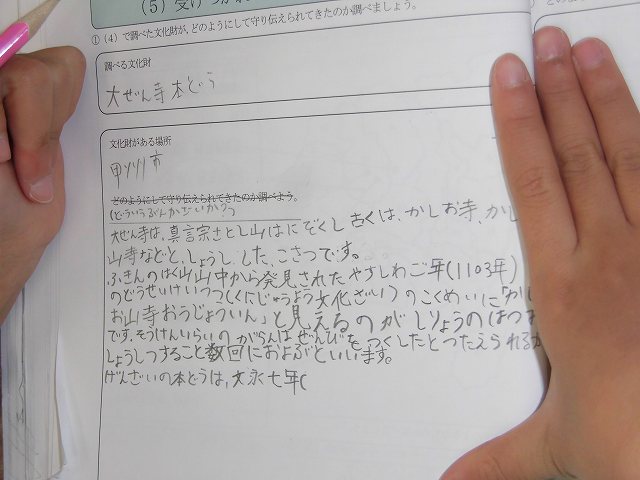 (5) 受けつがれ
①(4)で調べた文化財が、どのようにして守り伝えられてきたのか調べましょう。
調べる文化財
大ぜん寺本どう
文化財がある場所
甲州市
どのようにして守り伝えられてきたのか調べよう。
(どういうぶんかざいか)
大ぜん寺は、真言宗さとし山はにぞくし古くは、かしお寺、かし
山寺などと、しょうし した、こさつです。
ふきんのはく山山中から発見されたやすしわご年(1103年)
のどうせいけいつつ(くにじゅうよう文化ざい)のこくめいに「かし
お山寺おうじょういん」と見えるのがしりょうのはつ
です。そうけんいらいの がらんは ぜんびをつくしたとつたえられるが
しょうしつすること数回におよぶといいます。
げんざいの本どうは、文永七年(